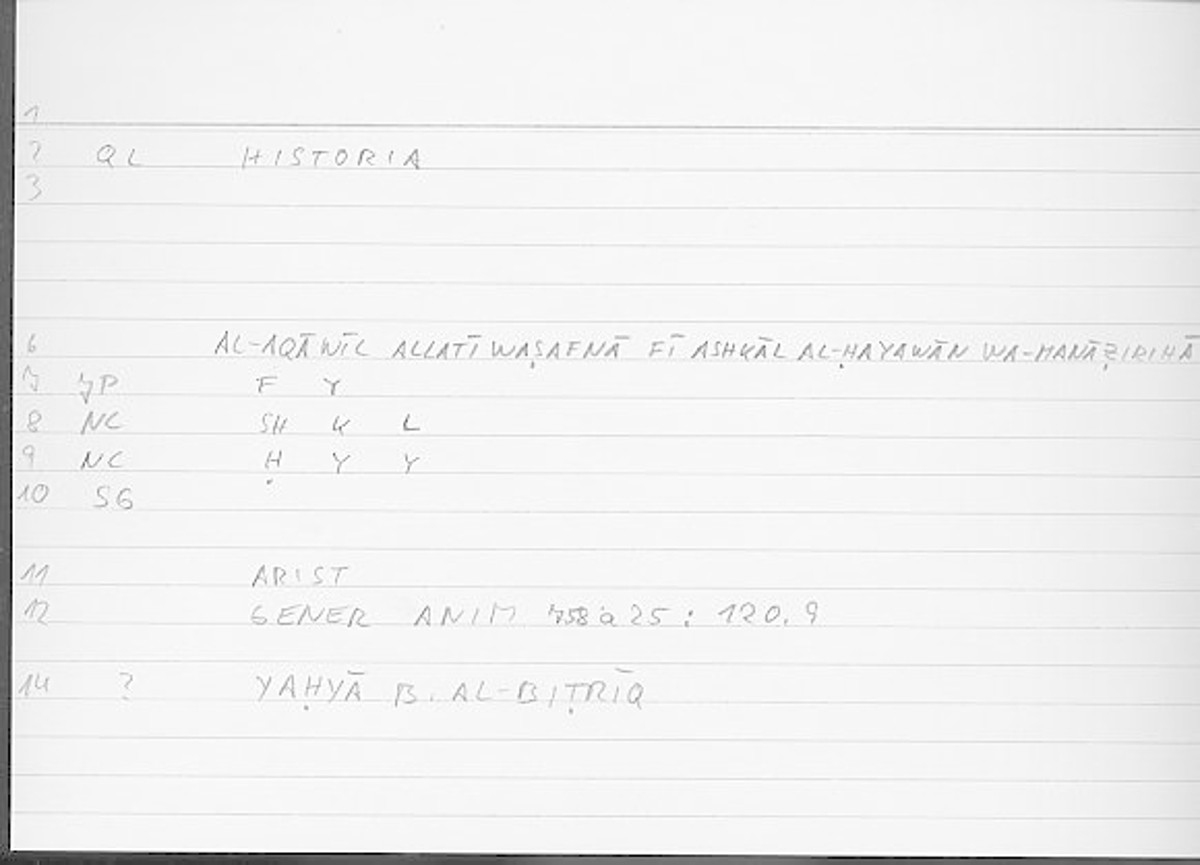 1
2 QL HISTORIA
3
6 AL-AQĀWĪL ALLATĪ WAṢAFNĀ FĪ ASHKĀL AL-ḤAYAWĀN WA-MANĀẒIRIHĀ
7 JP F Y
8 NC SH K L
9 NC Ḥ Y Y
10 SG
11 ARIST
12 GENER ANIM 758a25 : 120.9
14 ? YAḤYĀ B. AL-BIṬRĪQ